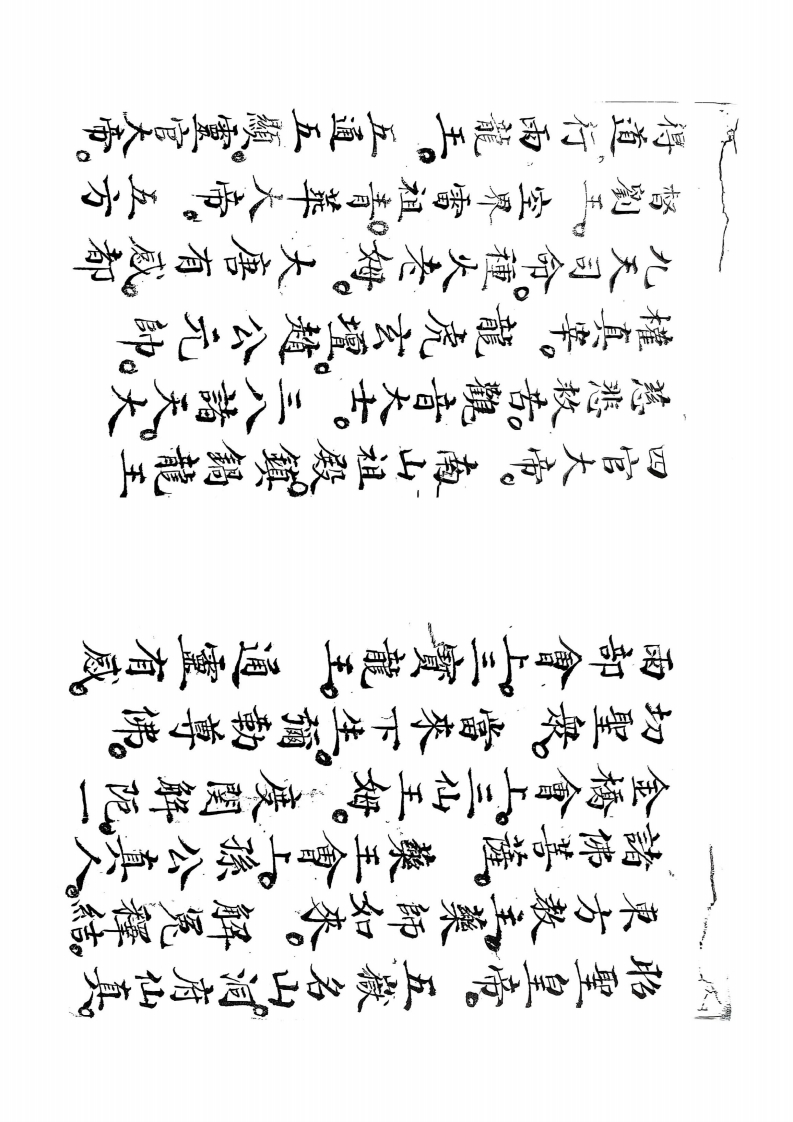 昭聖皇帝。五嶽名山。洞府仙真。
東方教主。藥師如來。解冤釋結。
諸佛菩薩。藥王會上。孫公真人。
金橋會上。三仙王姆。度関解阨。一
切聖衆。當來下生。彌勒尊佛。
雨部會上。三寶龍王。通靈有感。
四官大帝。南山祖殿。鎮鍋龍王
慈悲救苦。觀音大士。三八諸天。大
權真宰。龍虎玄壇。趙公元帥。
九天司命。種火老姆。大唐有感。都
督劉王。空界雷祖。青華大帝。五方
得道行雨龍王。五通五顯。靈官大帝。